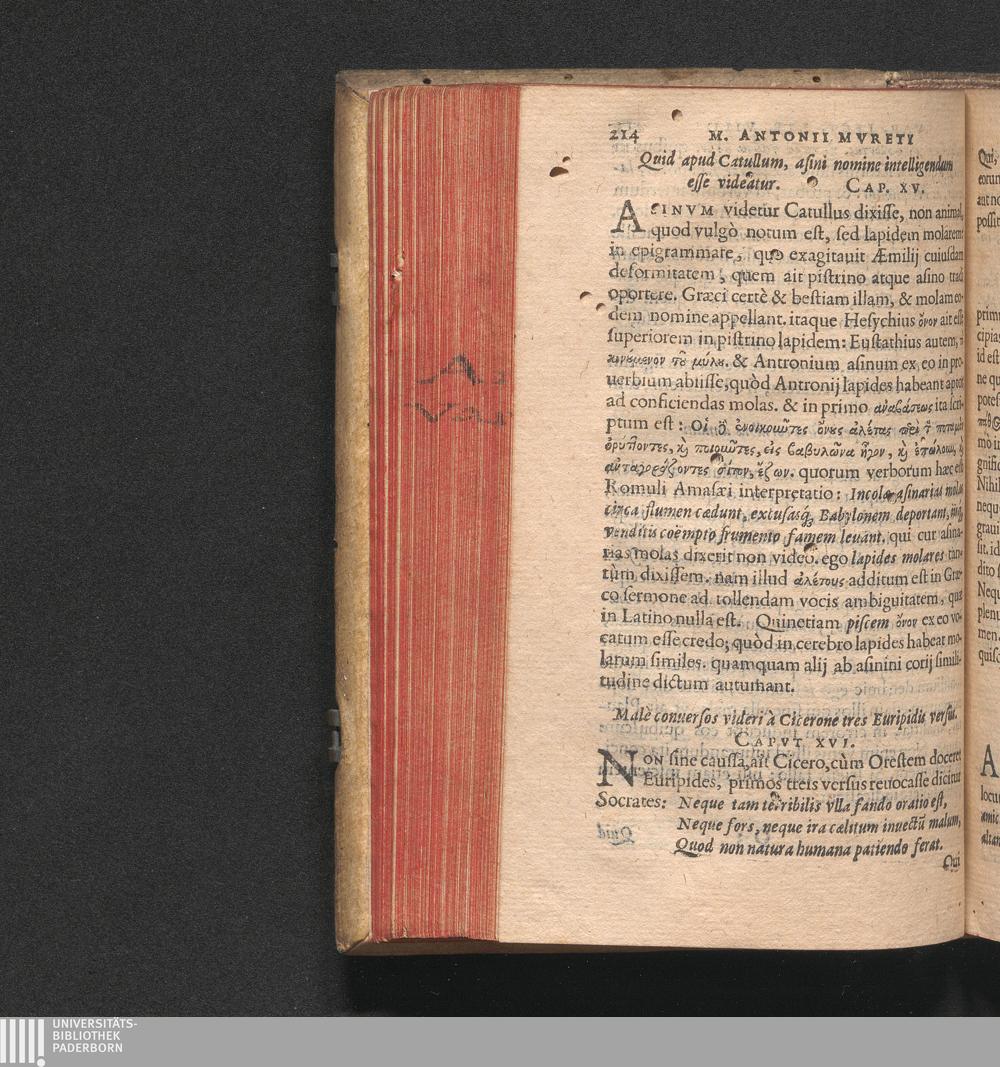 214 M. ANTONII MVRETI
Quid apud Catullum, asini nomine intelligendum
esse videatur. CAP. XV.
ASINVM videtur Catullus dixisse, non animal,
quod vulgò notum est, sed lapidem molarem:
in epigrammate, quo exagitauit Æmilij cuiusdam
deformitatem, quem ait pistrino atque asino tradi
oportere. Græci certè & bestiam illam, & molam eo-
dem nomine appellant. itaque Hesychius ὄνον ait esse
superiorem in pistrino lapidem: Eustathius autem,
κινούμενον τοῦ μύλου. & Antronium asinum ex eo in pro-
uerbium abiisse, quòd Antronij lapides habeant aptos
ad conficiendas molas. & in primo ἀναβάσεως ita scri-
ptum est: Οἱ ἐνοικοῦντες ὄνους ἀλέτας
ὀρύττοντες, καὶ ποιοῦντες, εἰς βαβυλῶνα ἦγον, καὶ ἐπώλουν,
ἀνταγοράζοντες σῖτον, ἔζων. quorum verborum hæc est
Romuli Amasæi interpretatio: Incolæ asinarias molas
circa flumen cædunt, excusasq́; Babylonem deportant, iisq́;
venditis coëmpto frumento famem leuant. qui cur asina-
rias molas dixerit non video. ego lapides molares tan-
tùm dixissem. nam illud ἀλέτους additum est in Græ-
co sermone ad tollendam vocis ambiguitatem, quæ
in Latino nulla est. Quinetiam piscem ὄνον ex eo vo-
catum esse credo; quòd in cerebro lapides habeat mo-
larum similes. quamquam alij ab asinini corij simili-
tudine dictum autumant.
Malè conuersos videri à Cicerone tres Euripidis versus.
CAPVT XVI.
NON sine caussa, ait Cicero, cùm Orestem doceret
Euripides, primos treis versus reuocasse dicitur
Socrates: Neque tam terribilis vlla fando oratio est,
Neque fors, neque ira cælitum inuectũ malum,
Quod non natura humana patiendo ferat.
Qui
Qui,
eorum
aut no
possit
prim
cipia
id est
ne qu
potes
mò in
gnific
Nihil
nequ
graui
sit. id
dito
Nequ
plenu
men.
quisq
A
locu
amic
altar
UNIVERSITÄTS-
BIBLIOTHEK
PADERBORN